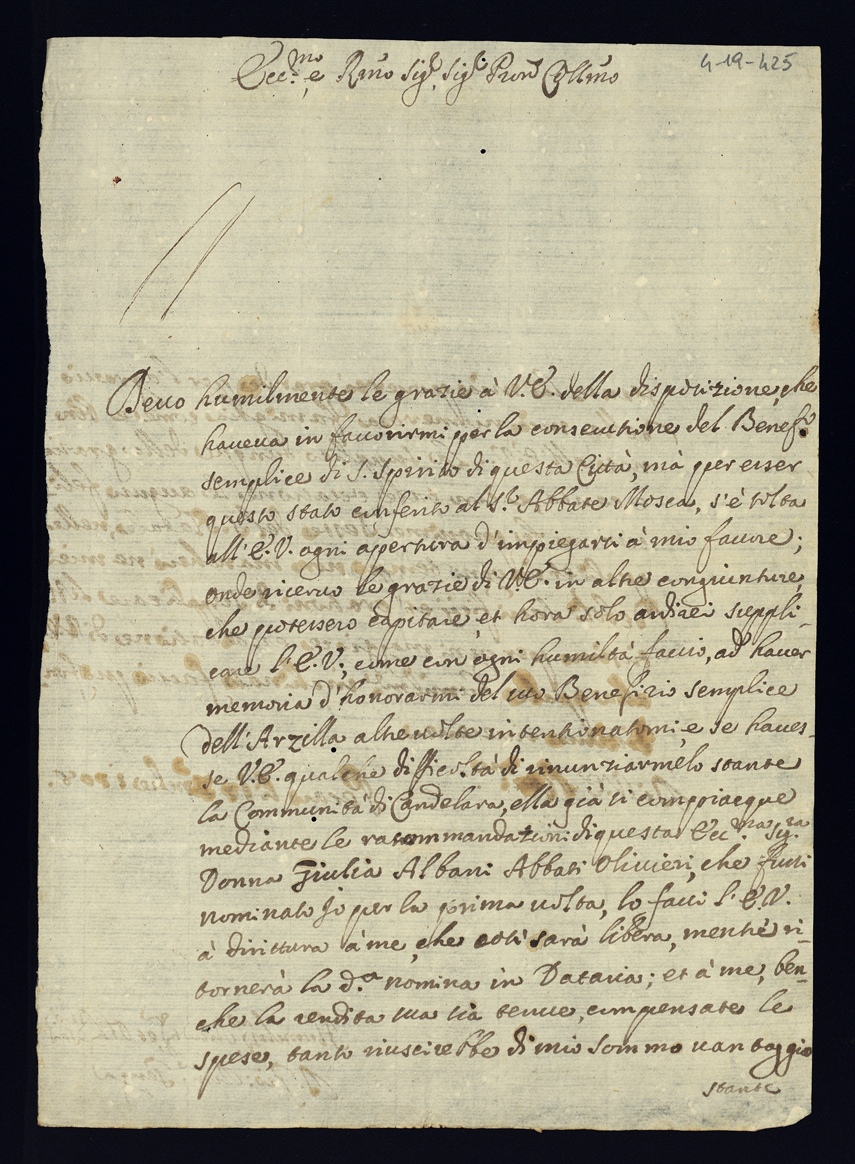 Ecc.mo e Rmo Sig.r Sig.r Pron Collmo
4-19-425
Devo humilmente le grazie à V.E. della disposizione, che
haveva in favorirmi per la consecutione del Benef.o
semplice di S. Spirito di questa Città, mà per esser
questo stato conferito al S.r Abbate Mosca, s'è tolta
all'E.V. ogni apertura d'impiegarsi à mio favore;
onde riservo le grazie di V.E. in altre congiunture,
che potessero capitare, et hora solo ardirei suppli-
care l'E.V., come con ogni humiltà faccio, ad haver
memoria d'honorarmi del suo Benefizio semplice
dell'Arzilla altre volte intentionatomi, e se haves-
se V.E. qualche difficoltà di rinunziarmelo stante
la Communità di Candelara, ella già si compiacque
mediante le racommandationi di questa Ecc.ma Sig.ra
Donna Giulia Albani Abbati Olivieri, che fussi
nominato Io per la prima volta, lo facci l'E.V.
à dirittura à me, che così sarà libera, mentre ri-
tornerà la d.a nomina in Dataria; et à me, ben-
che la rendita sua sia tenue, compensate le
spese, tanto riuscirebbe di mio sommo vantaggio
stante